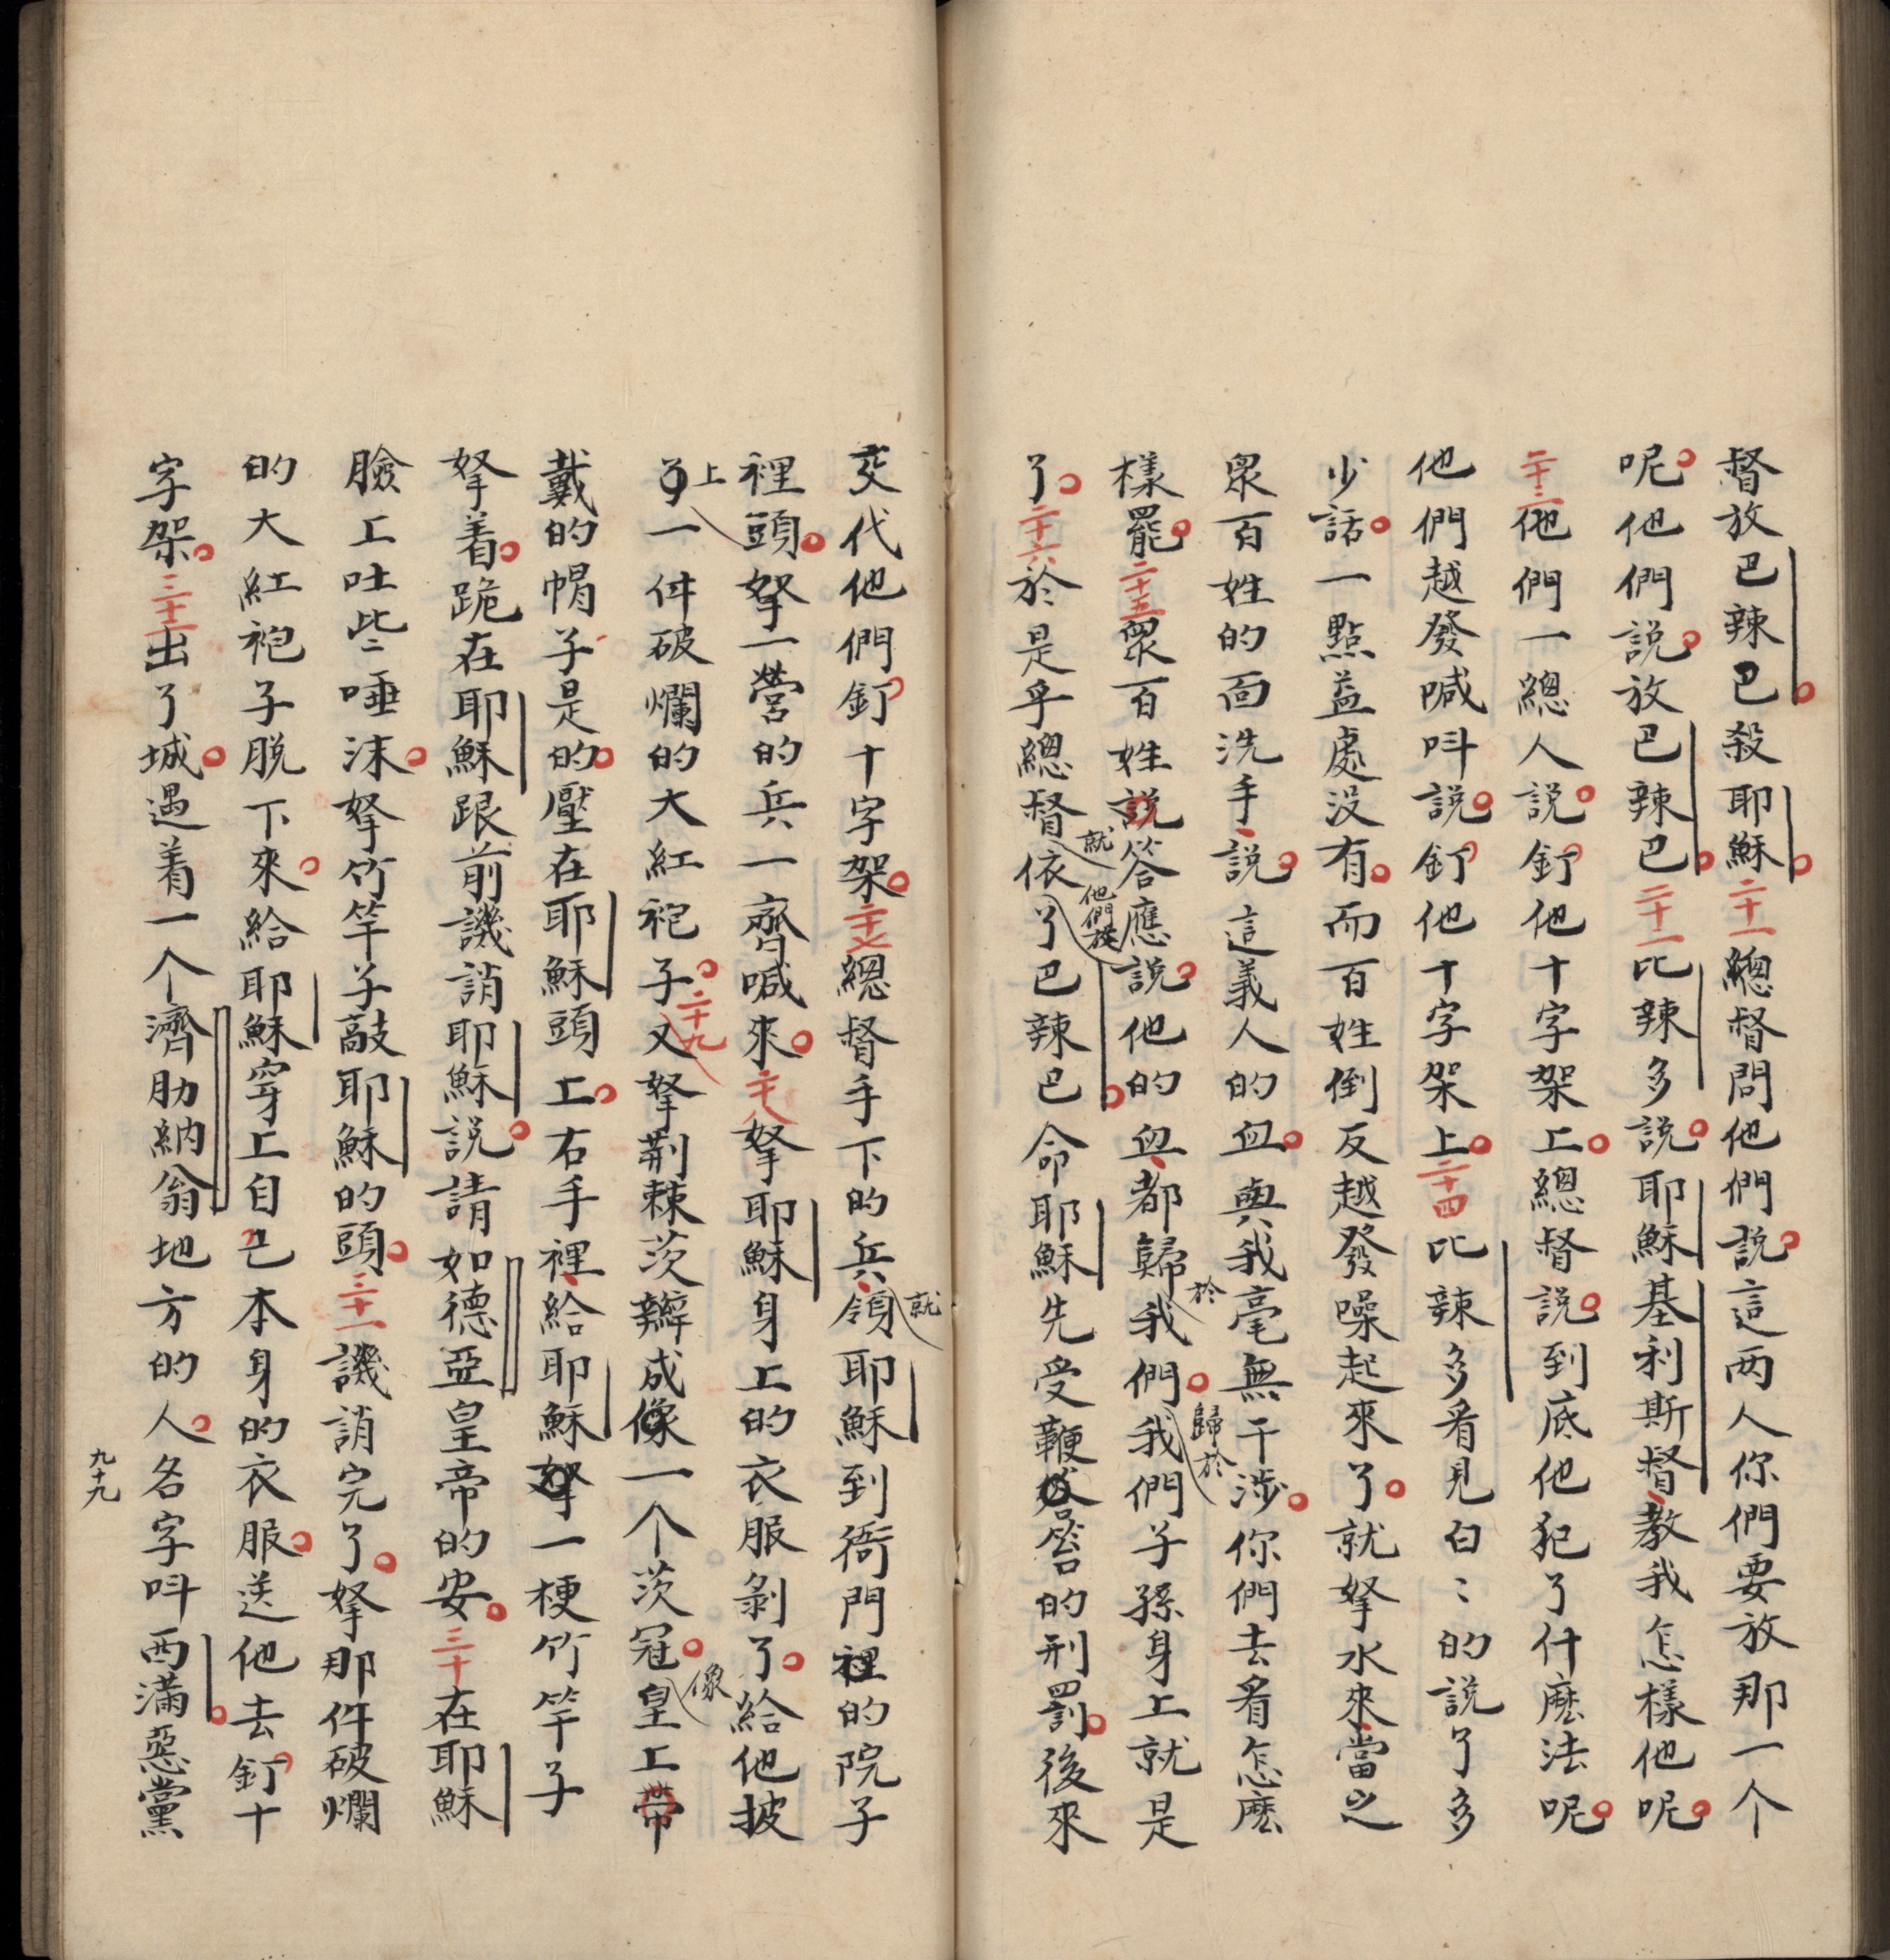 督放巴辣巴殺耶穌二十一總督問他們説這两人你們要放那一个
呢他們説放巴辣巴二十二比辣多説耶穌基利斯督教我怎樣他呢
二十三他們一總人説釘他十字架上總督説到底他犯了什麽法呢
他們越發喊呌説釘他十字架上二十四比辣多看見白〻的説了多
少話一點益處没有而百姓倒反越發噪起來了就拏水來當之
衆百姓的面洗手説這義人的血與我毫無干涉你們去看怎麽
樣罷二十五衆百姓説答應説他的血都歸於我們歸於我們子孫身上就是
了二十六於是乎總督就依了他們放巴辣巴命耶穌先受鞭笞的刑罰後來
交代他們釘十字架二十七總督手下的兵就領耶穌到衙門裡的院子
裡頭拏一營的兵一齊喊來二十八拏耶穌身上的衣服剝了給他披
上一件破爛的大紅袍子二十九又拏荆棘茨辮成一个茨冠像皇上帶
戴的帽子是的壓在耶穌頭上右手裡給耶穌拏一梗竹竿子
拏着跪在耶穌跟前譏誚耶穌説請如德亞皇帝的安三十在耶穌
臉上吐些唾沫拏竹竿子敲耶穌的頭三十一譏誚完了拏那件破爛
的大紅袍子脱下來給耶穌穿上自己本身的衣服送他去釘十
字架三十二出了城遇着一个濟肋納翁地方的人名字呌西滿惡黨
九十九